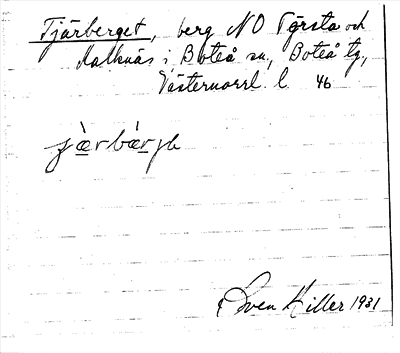 Tjärberget, berg NO Törsta och
Kalknäs i Boteå sn, Boteå tg,
Västernorrl. l. 46
Sven Hiller 1931